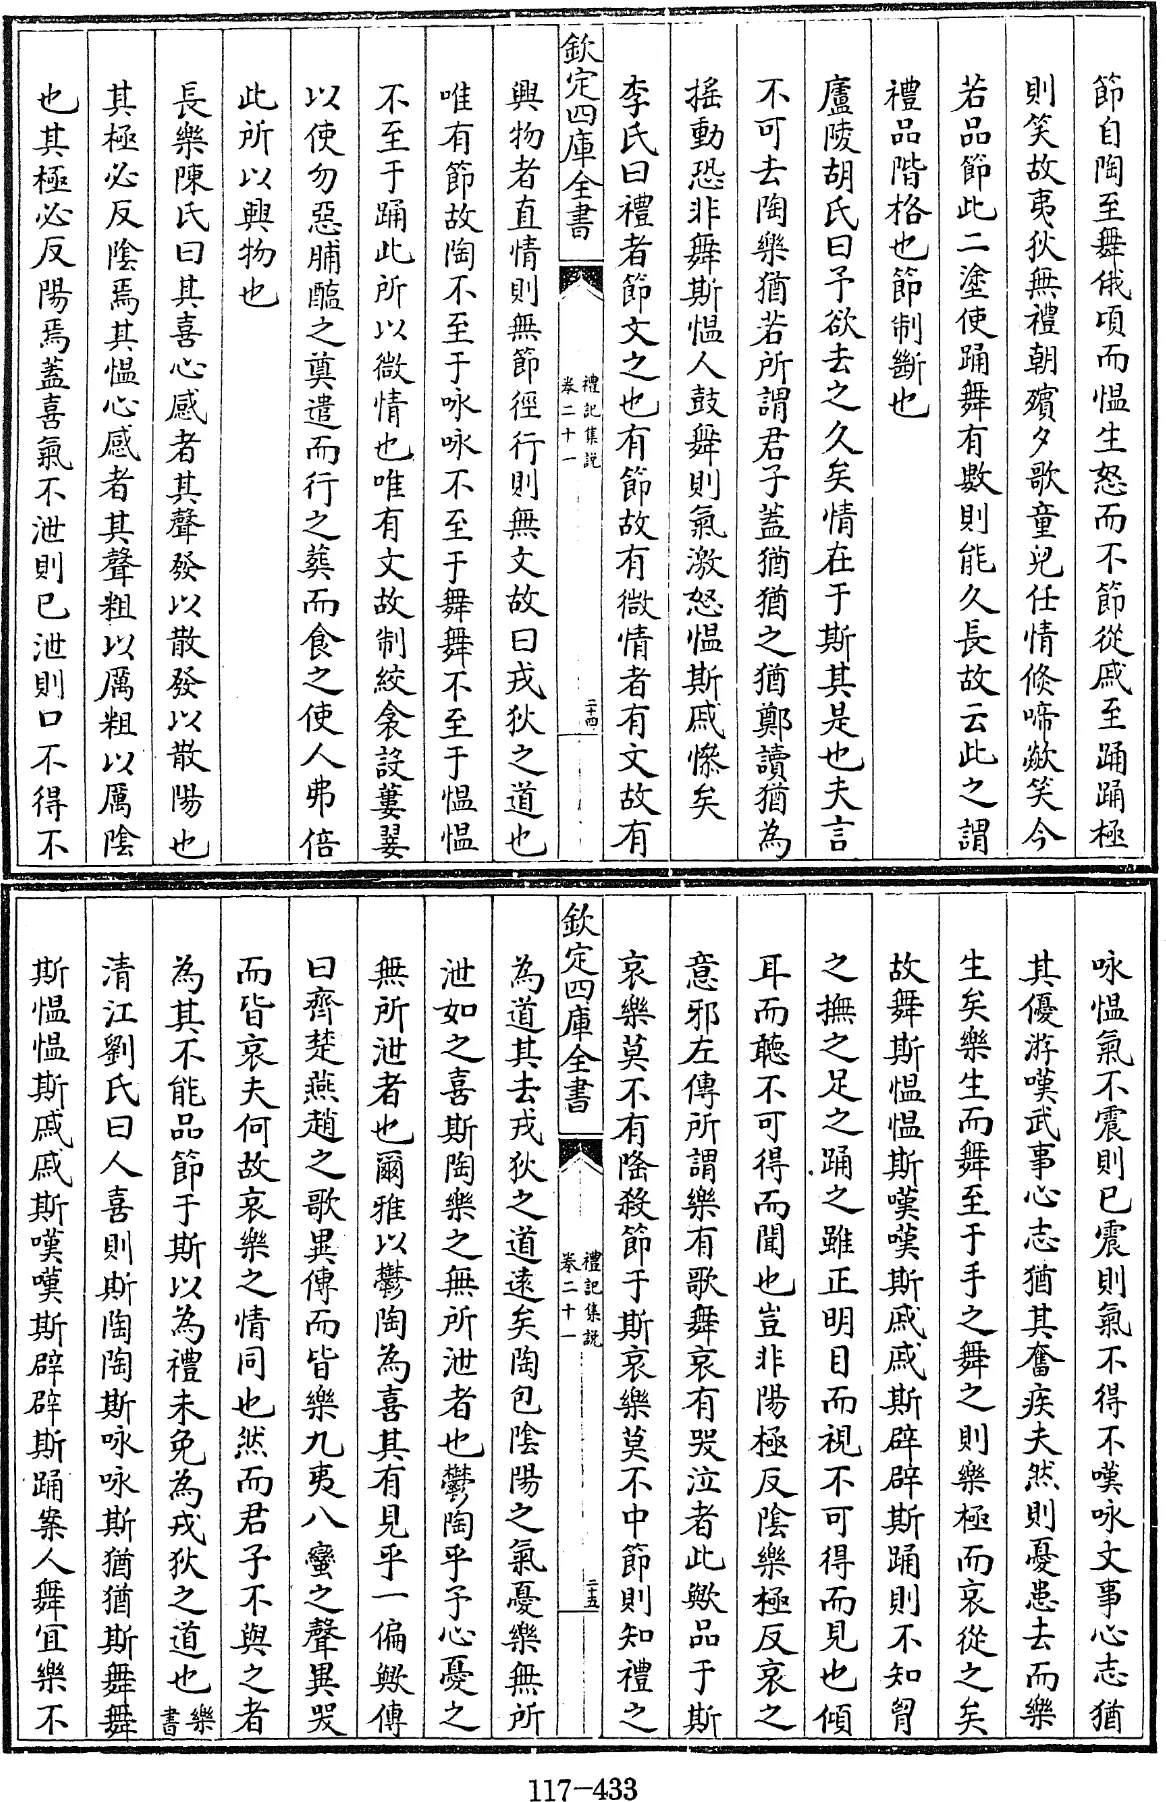 節自陶至舞俄頃而愠生怒而不節從戚至踊踊極
則笑故夷狄無禮朝殯夕歌童兒任情倐啼歘笑今
若品節此二塗使踊舞有數則能久長故云此之謂
禮品階格也節制斷也
廬陵胡氏曰予欲去之久矣情在于斯其是也夫言
不可去陶樂猶若所謂君子蓋猶猶之猶鄭讀猶為
揺動恐非舞斯愠人鼓舞則氣激怒愠斯戚慘矣
李氏曰禮者節文之也有節故有微情者有文故有
欽定四庫全書
禮記集說
卷二十一
二十四
興物者直情則無節徑行則無文故曰戎狄之道也
唯有節故陶不至于咏咏不至于舞舞不至于愠愠
不至于踊此所以微情也唯有文故制絞衾設蔞翣
以使勿惡脯醢之奠遣而行之葬而食之使人弗倍
此所以興物也
長樂陳氏曰其喜心感者其聲發以散發以散陽也
其極必反陰焉其愠心感者其聲粗以厲粗以厲陰
也其極必反陽焉蓋喜氣不泄則已泄則口不得不
咏愠氣不震則已震則氣不得不嘆咏文事心志猶
其優游嘆武事心志猶其奮疾夫然則憂患去而樂
生矣樂生而舞至于手之舞之則樂極而哀從之矣
故舞斯愠愠斯嘆嘆斯戚戚斯辟辟斯踊則不知胷
之撫之足之踊之雖正明目而視不可得而見也傾
耳而聽不可得而聞也豈非陽極反陰樂極反哀之
意邪左傳所謂樂有歌舞哀有哭泣者此歟品于斯
哀樂莫不有隆殺節于斯哀樂莫不中節則知禮之
欽定四庫全書
禮記集說
卷二十一
二十五
為道其去戎狄之道遠矣陶包陰陽之氣憂樂無所
泄如之喜斯陶樂之無所泄者也鬱陶乎予心憂之
無所泄者也爾雅以鬱陶為喜其有見乎一偏歟傳
曰齊楚燕趙之歌異傳而皆樂九夷八蠻之聲異哭
而皆哀夫何故哀樂之情同也然而君子不與之者
為其不能品節于斯以為禮未免為戎狄之道也樂書
清江劉氏曰人喜則斯陶陶斯咏咏斯猶猶斯舞舞
斯愠愠斯戚戚斯嘆嘆斯辟辟斯踊案人舞宜樂不
117-433